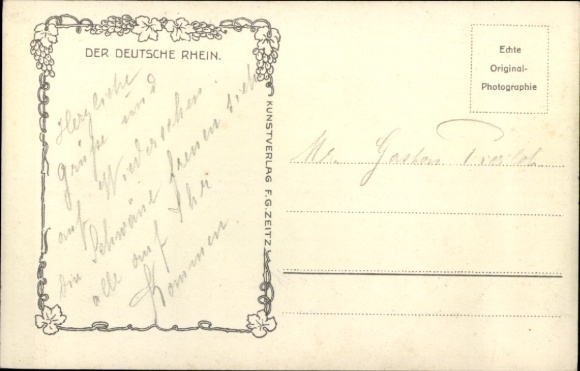 DER DEUTSCHE RHEIN.
Herzliche
Grüße und
auf Wiedersehen.
die Schwäne freuen sich
alle auf Ihr
Kommen.
KUNSTVERLAG F.G.ZEITZ
Echte
Original-
Photographie
Mr. Gaston